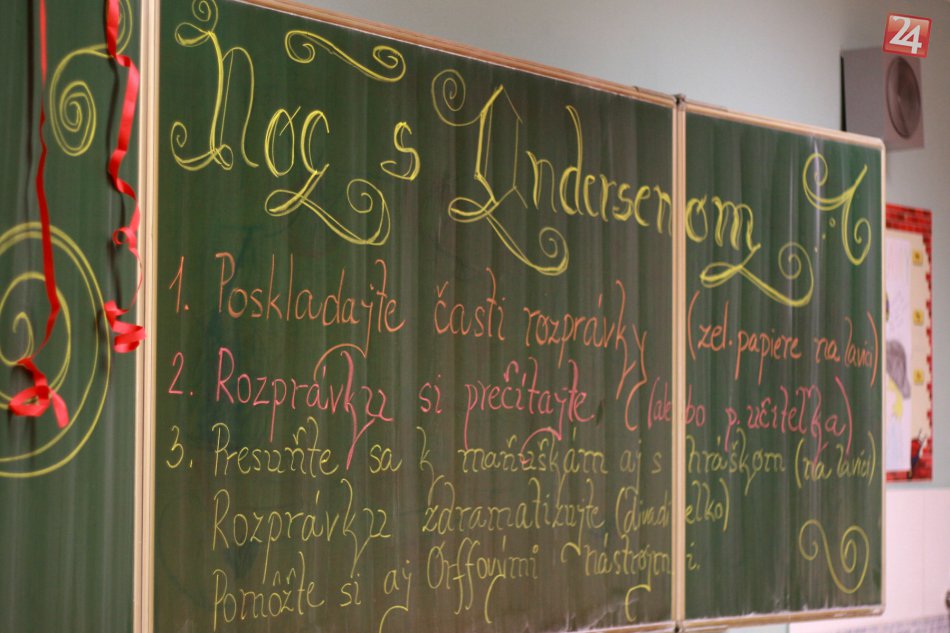 24
Noc s Andersenom
1. Poskladajte časti rozprávky (zel. papiere na lavici)
2. Rozprávku si prečítajte (alebo p. učiteľka)
3. Presuňte sa k maňuškám aj s hráškom (na lavici)
Rozprávku zdramatizujte (divadielko)
Pomôžte si aj Orffovými nástrojmi.